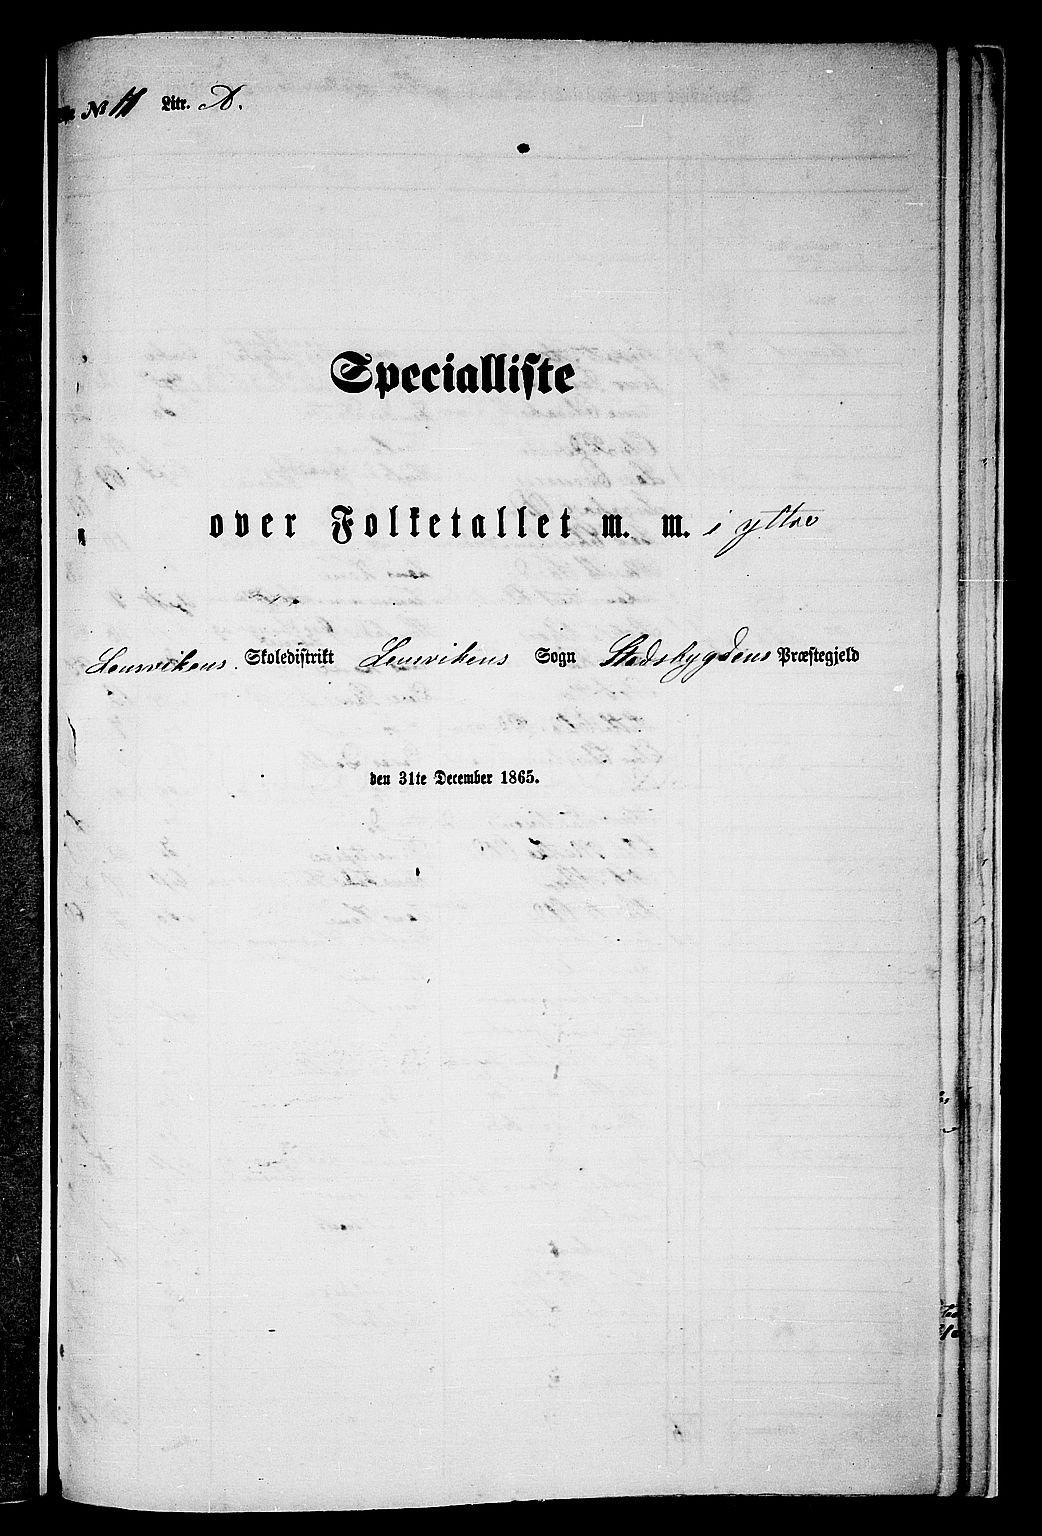 № 11 Litr. A.
Specialliste
over Folketallet m. m. i yttre
Lensvikens Skoledistrikt Lensvikens Sogn Stadsbygdens Præstegjeld
den 31te December 1865.